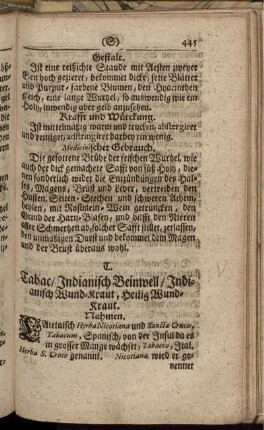 (S) 445
Gestalt.
Ist eine reißichte Staude mit Aesten zweyer
Elen hoch gezieret, bekommet dicke, fette Blätter
und Purpur-farbene Blumen, den Hyacinthen
gleich, eine lange Wurtzel, so auswendig wie ein
Holtz, inwendig aber gelb anzusehen.
Krafft und Würckung.
Ist mittelmäßig warm und trucken, abstergiret
und reiniget, adstringiret darbey ein wenig.
Medicinischer Gebrauch.
Die gesottene Brühe der frischen Wurtzel, wie
auch der dick gemachte Safft von süß Holtz, die-
nen sonderlich wider die Entzündungen des Hal-
ses, Magens, Brust und Leber, vertreiben den
Husten, Seiten-Stechen und schweren Athem
holen, mit Rosinlein-Wein getruncken, den
Grund der Harn-Blasen, und hilfft den Nieren
aller Schmertzen ab, solcher Safft stillet, zerlassen,
den unmäßigen Durst und bekommet dem Magen
und der Brust überaus wohl.
T.
Tabac/ Indianisch Beinwell/ Indi-
anisch Wund-Kraut, Heilig Wund-
Kraut.
Nahmen.
LAteinisch Herba Nicotiana und Sancta Crucis,
Tabacum, Spanisch, von der Insul da es
in grosser Mänge wächset, Tabacco, Ital.
Herba S. Croce genannt. Nicotiana wird er ge-
nennet